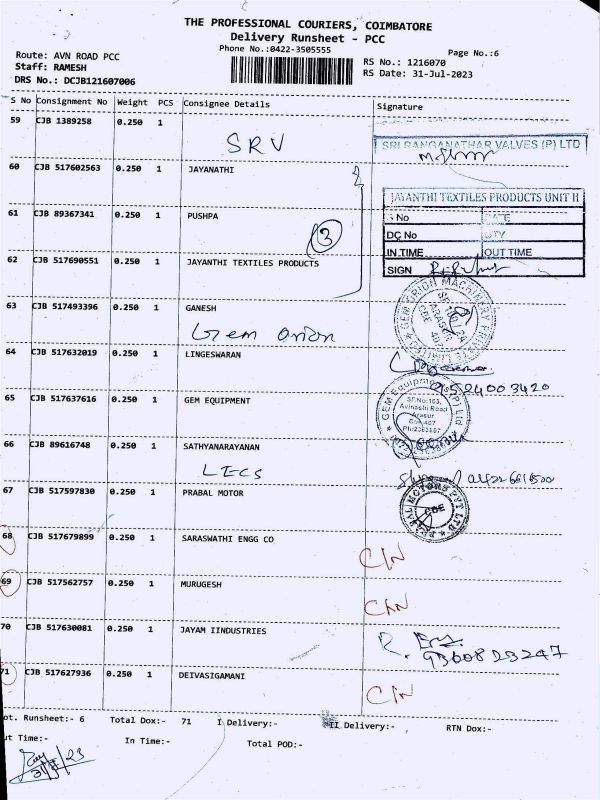 THE PROFESSIONAL COURIERS, COIMBATORE
Delivery Runsheet - PCC
Phone No.:0422-3505555
Page No.:6
Route: AVN ROAD PCC
Staff: RAMESH
DRS No.: DCJB121607006
RS No.: 1216070
RS Date: 31-Jul-2023
S No Consignment No Weight PCS Consignee Details Signature
59 CJB 1389258 0.250 1
SRV
SRI RANGANATHAR VALVES (P) LTD
60 CJB 517602563 0.250 1 JAYANATHI
JAYANTHI TEXTILES PRODUCTS UNIT II
61 CJB 89367341 0.250 1 PUSHPA
S No DATE
3
DC No QTY
IN TIME OUT TIME
62 CJB 517690551 0.250 1 JAYANTHI TEXTILES PRODUCTS
SIGN
63 CJB 517493396 0.250 1 GANESH
Gem orion
64 CJB 517632019 0.250 1 LINGESWARAN
65 CJB 517637616 0.250 1 GEM EQUIPMENT
GEM Equipments (P) Ltd
SF.No:103,
Avinashi Road
Arasur
66 CJB 89616748 0.250 1 SATHYANARAYANAN
LECS
67 CJB 517597830 0.250 1 PRABAL MOTOR
PRABAL MOTORS PVT LTD
CBE
68 CJB 517679899 0.250 1 SARASWATHI ENGG CO
C/N
69 CJB 517562757 0.250 1 MURUGESH
C/N
70 CJB 517630081 0.250 1 JAYAM IINDUSTRIES
9360823247
71 CJB 517627936 0.250 1 DEIVASIGAMANI
C/N
ot. Runsheet:- 6 Total Dox:- 71 I Delivery:- II Delivery:- RTN Dox:-
ut Time:- In Time:- Total POD:-